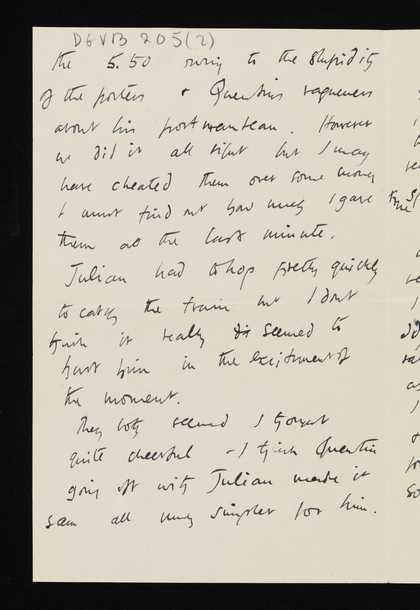 DGVB 205(2)
the 5.50 owing to the stupidity
of the porters & Quentins vagueness
about his portmanteau. However
we did it all right but I may
have cheated them over some money
& must find out how much I gave
them at the last minute.
Julian had to hop pretty quickly
to catch the train but I dont
think it really seemed to
hurt him in the excitement of
the moment.
They both seemed I thought
quite cheerful – I think Quentin
going off with Julian made it
seem all much simpler for him.